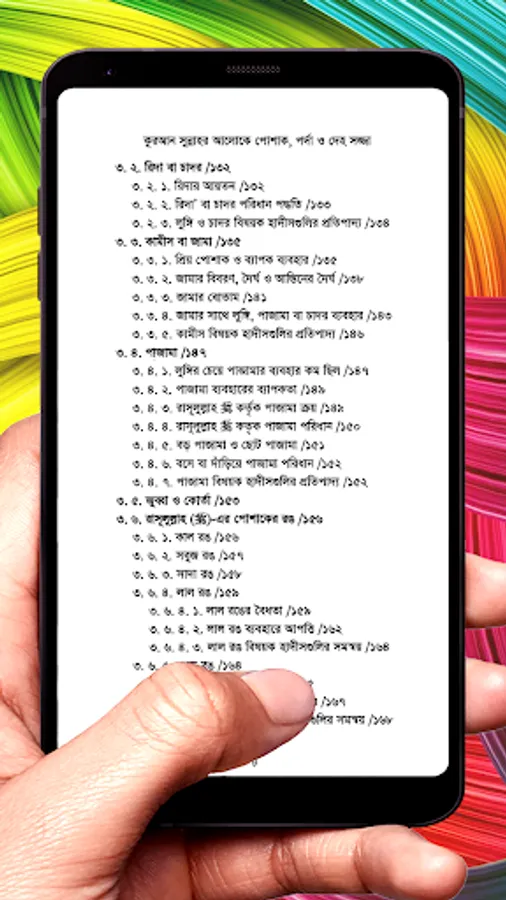 কুরআন সুন্নাহর আলোকে পোশাক, পর্দা ও দেহ সজ্জা
৩. ২. রিদা বা চাদর /১৩২
৩. ২. ১. রিদার আয়তন /১৩২
৩. ২. ২. রিদা' বা চাদর পরিধান পদ্ধতি /১৩৩
৩. ২. ৩. লুঙ্গি ও চাদর বিষয়ক হাদীসগুলির প্রতিপাদ্য /১৩৪
৩. ৩. কামীস বা জামা /১৩৫
৩. ৩. ১. প্রিয় পোশাক ও ব্যাপক ব্যবহার /১৩৫
৩. ৩. ২. জামার বিবরণ, দৈর্ঘ ও আস্তিনের দৈর্ঘ /১৩৮
৩. ৩. ৩. জামার বোতাম /১৪১
৩. ৩. ৪. জামার সাথে লুঙ্গি, পাজামা বা চাদর ব্যবহার /১৪৩
৩. ৩. ৫. কামীস বিষয়ক হাদীসগুলির প্রতিপাদ্য /১৪৬
৩. ৪. পাজামা /১৪৭
৩. ৪. ১. লুঙ্গির চেয়ে পাজামার ব্যবহার কম ছিল /১৪৭
৩. ৪. ২. পাজামা ব্যবহারের ব্যাপকতা /১৪৯
৩. ৪. ৩. রাসূলুল্লাহ ﷺ কর্তৃক পাজামা ক্রয় /১৪৯
৩. ৪. ৪. রাসূলুল্লাহ ﷺ কর্তৃক পাজামা পরিধান /১৫০
৩. ৪. ৫. বড় পাজামা ও ছোট পাজামা /১৫১
৩. ৪. ৬. বসে বা দাঁড়িয়ে পাজামা পরিধান /১৫২
৩. ৪. ৭. পাজামা বিষয়ক হাদীসগুলির প্রতিপাদ্য /১৫২
৩. ৫. জুব্বা ও কোর্তা /১৫৩
৩. ৬. রাসূলুল্লাহ (ﷺ)-এর পোশাকের রঙ /১৫৬
৩. ৬. ১. কাল রঙ /১৫৬
৩. ৬. ২. সবুজ রঙ /১৫৭
৩. ৬. ৩. সাদা রঙ /১৫৮
৩. ৬. ৪. লাল রঙ /১৫৯
৩. ৬. ৪. ১. লাল রঙের বৈধতা /১৫৯
৩. ৬. ৪. ২. লাল রঙ ব্যবহারে আপত্তি /১৬২
৩. ৬. ৪. ৩. লাল রঙ বিষয়ক হাদীসগুলির সমন্বয় /১৬৪
৩. ৬. রঙ /১৬৪
/১৬৭
সমন্বয় /১৬৮